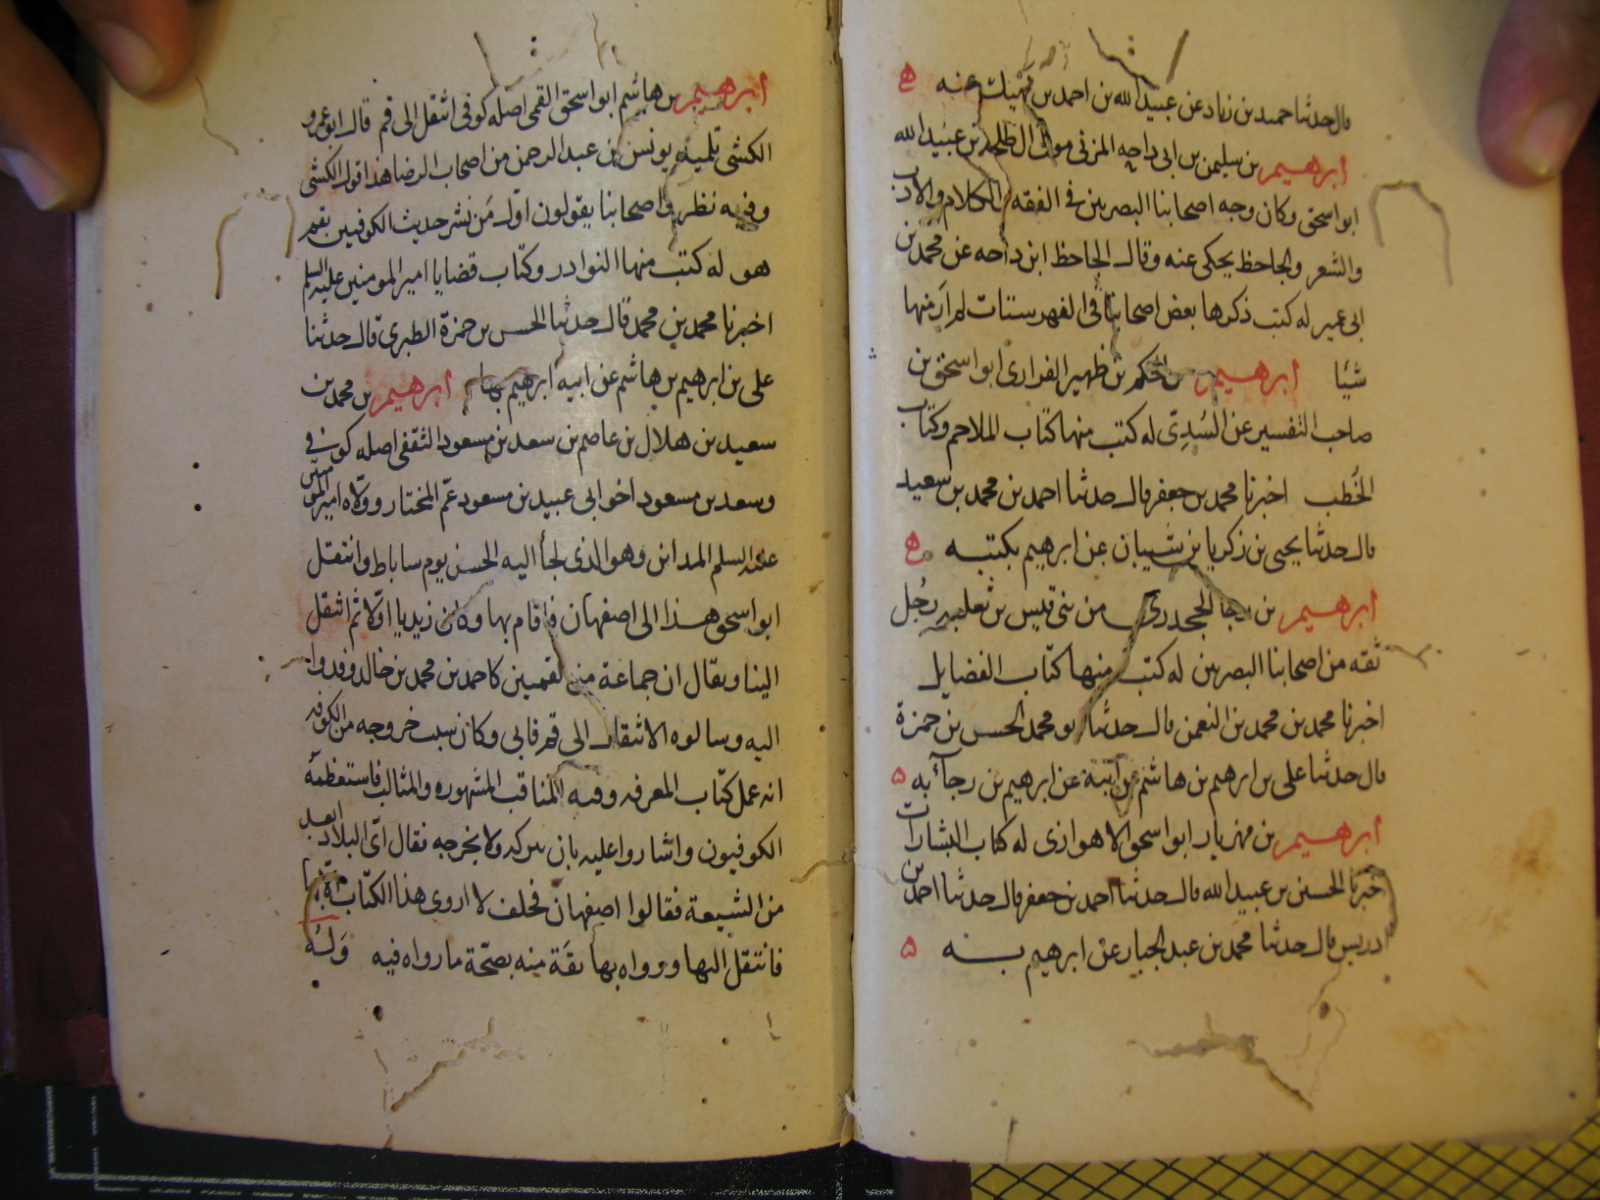 قال حدثنا حميد بن زياد عن عبيد الله بن احمد بن نهيك عنه ه
ابرهيم بن سليمن بن ابى داحه المزنى مولى ال طلحه بن عبيد الله
ابو اسحق وكان وجه اصحابنا البصريين فى الفقه والكلام والادب
والشعر والجاحظ يحكى عنه وقال الجاحظ ابن داحه عن محمد بن
ابى عمير له كتب ذكرها بعض اصحابنا فى الفهرستات لم ار منها
شيئا ابرهيم بن الحكم بن ظهير الفزارى ابو اسحق بن
صاحب التفسير عن السُدِّى له كتب منها كتاب الملاحم وكتاب
الخُطب اخبرنا محمد بن جعفر قال حدثنا احمد بن محمد بن سعيد
قال حدثنا يحيى بن زكريا بن شيبان عن ابرهيم بكتبه ه
ابرهيم بن رجا الجحدرى من بنى قيس بن ثعلبه رجُل
ثقه من اصحابنا البصريين له كتب منها كتاب الفضايل
اخبرنا محمد بن محمد بن النعمن قال حدثنا ابو محمد الحسن بن حمزة
قال حدثنا على بن ابرهيم بن هاشم عن ابيه عن ابرهيم بن رجآء به ه
ابرهيم بن مهزيار ابو اسحق الاهوازى له كتاب البشارات
اخبرنا الحسين بن عبيد الله قال حدثنا احمد بن جعفر قال حدثنا احمد بن
ادريس قال حدثنا محمد بن عبد الجبار عن ابرهيم بـــه ه
ابرهيم بن هاشم ابو اسحق القمى اصله كوفى انتقل الى قم قال ابو عمرو
الكشى تلميذ يونس بن عبد الرحمن من اصحاب الرضا هذا قول الكشى
وفيه نظر واصحابنا يقولون اول مَن نشر حديث الكوفيين بقم
هو له كتب منها النوادر وكتاب قضايا امير المومنين عليه السلم
اخبرنا محمد بن محمد قال حدثنا الحسن بن حمزة الطبرى قال حدثنا
على بن ابرهيم بن هاشم عن ابيه ابرهيم بها ابرهيم بن محمد بن
سعيد بن هلال بن عاصم بن سعد بن مسعود الثقفى اصله كوفى
وسعد بن مسعود اخو ابى عبيد بن مسعود عمّ المختار وولاه امير المومنين
عليه السلم المداين وهو الذى لجأ اليه الحسن يوم ساباط وانتقل
ابو اسحق هذا الى اصفهان واقام بها وكان زيديا اوّلا ثم انتقل
الينا ويقال ان جماعة من القميين كاحمد بن محمد بن خالد وفدوا
اليه وسالوه الانتقال الى قم فابى وكان سبب خروجه من الكوفه
انه عمل كتاب المعرفه وفيه المناقب المشهوره والمثالب فاستعظمه
الكوفيون واشاروا عليه بان يتركه ولا يخرجه فقال اىّ البلاد ابعد
من الشيعة فقالوا اصفهان فحلف لا اروى هذا الكتاب الا بها
فانتقل اليها ورواه بها ثقَة منه بصحّة ما رواه فيه وَلـهُ